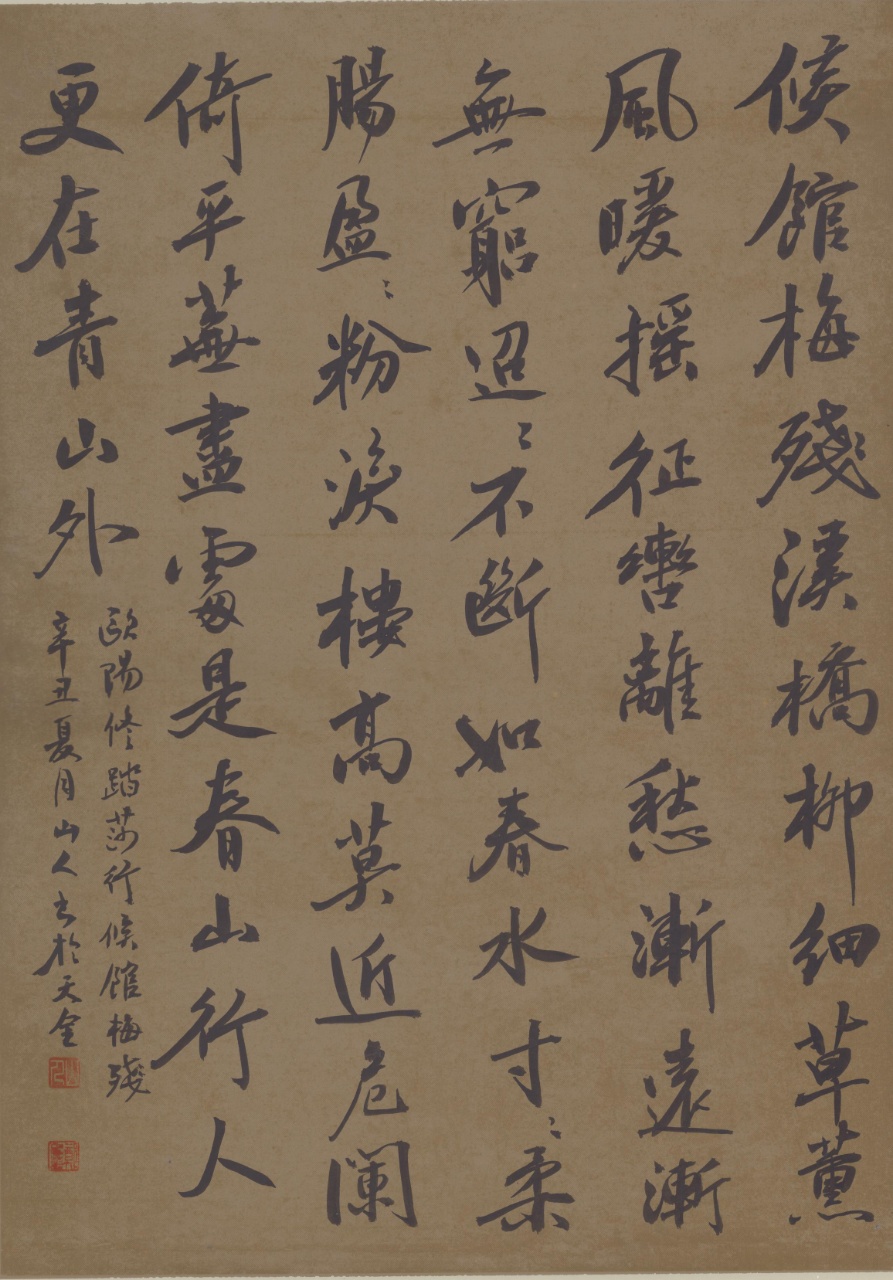 候館梅殘溪橋柳細草薰
風暖摇征轡離愁漸遠漸
無窮迢〻不斷如春水寸〻柔
腸盈〻粉淚樓高莫近危闌
倚平蕪盡處是春山行人
更在青山外
歐陽修踏莎行候館梅殘
辛丑夏月山人書於天全